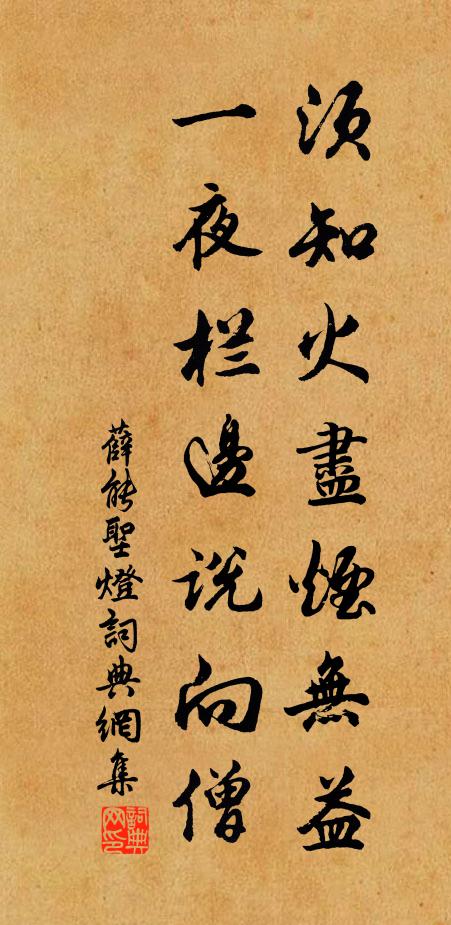 须知火盡煙無益
一夜栏邊说向僧
薛能聖燈詞典網集
詞典网印